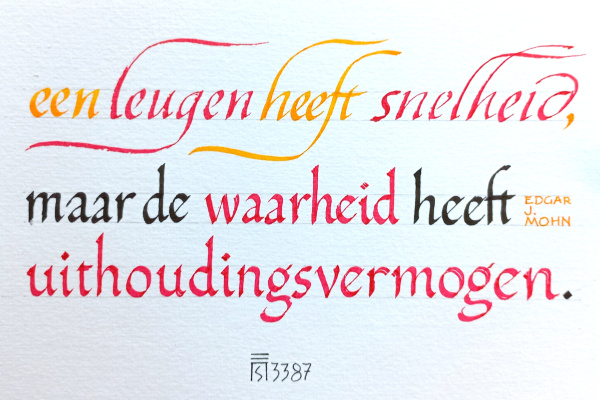 een leugen heeft snelheid,
maar de waarheid heeft
EDGAR
J.
MOHN
uithoudingsvermogen.
3387